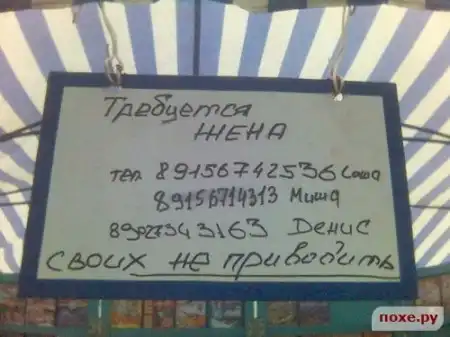 Требуется
ЖЕНА
тел. 89156742536 Саша
89156714313 Миша
89027343163 Денис
СВОИХ НЕ ПРИВОДИТЬ
похе.ру